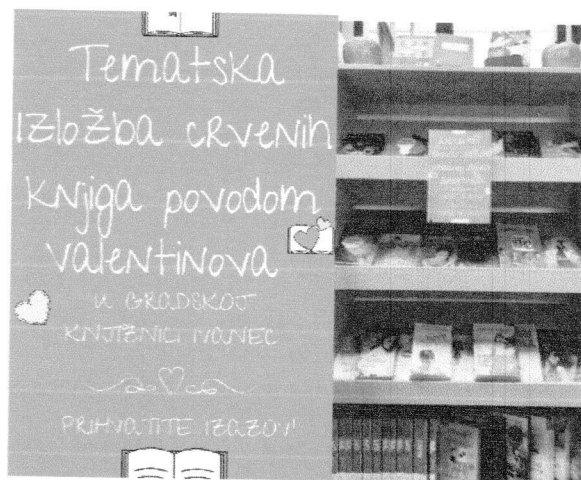 Tematska
Izložba crvenih
knjiga povodom
Valentinova
U GRADSKOJ
KNJIŽNICI IVANEC
PRIHVATITE IZAZOV!